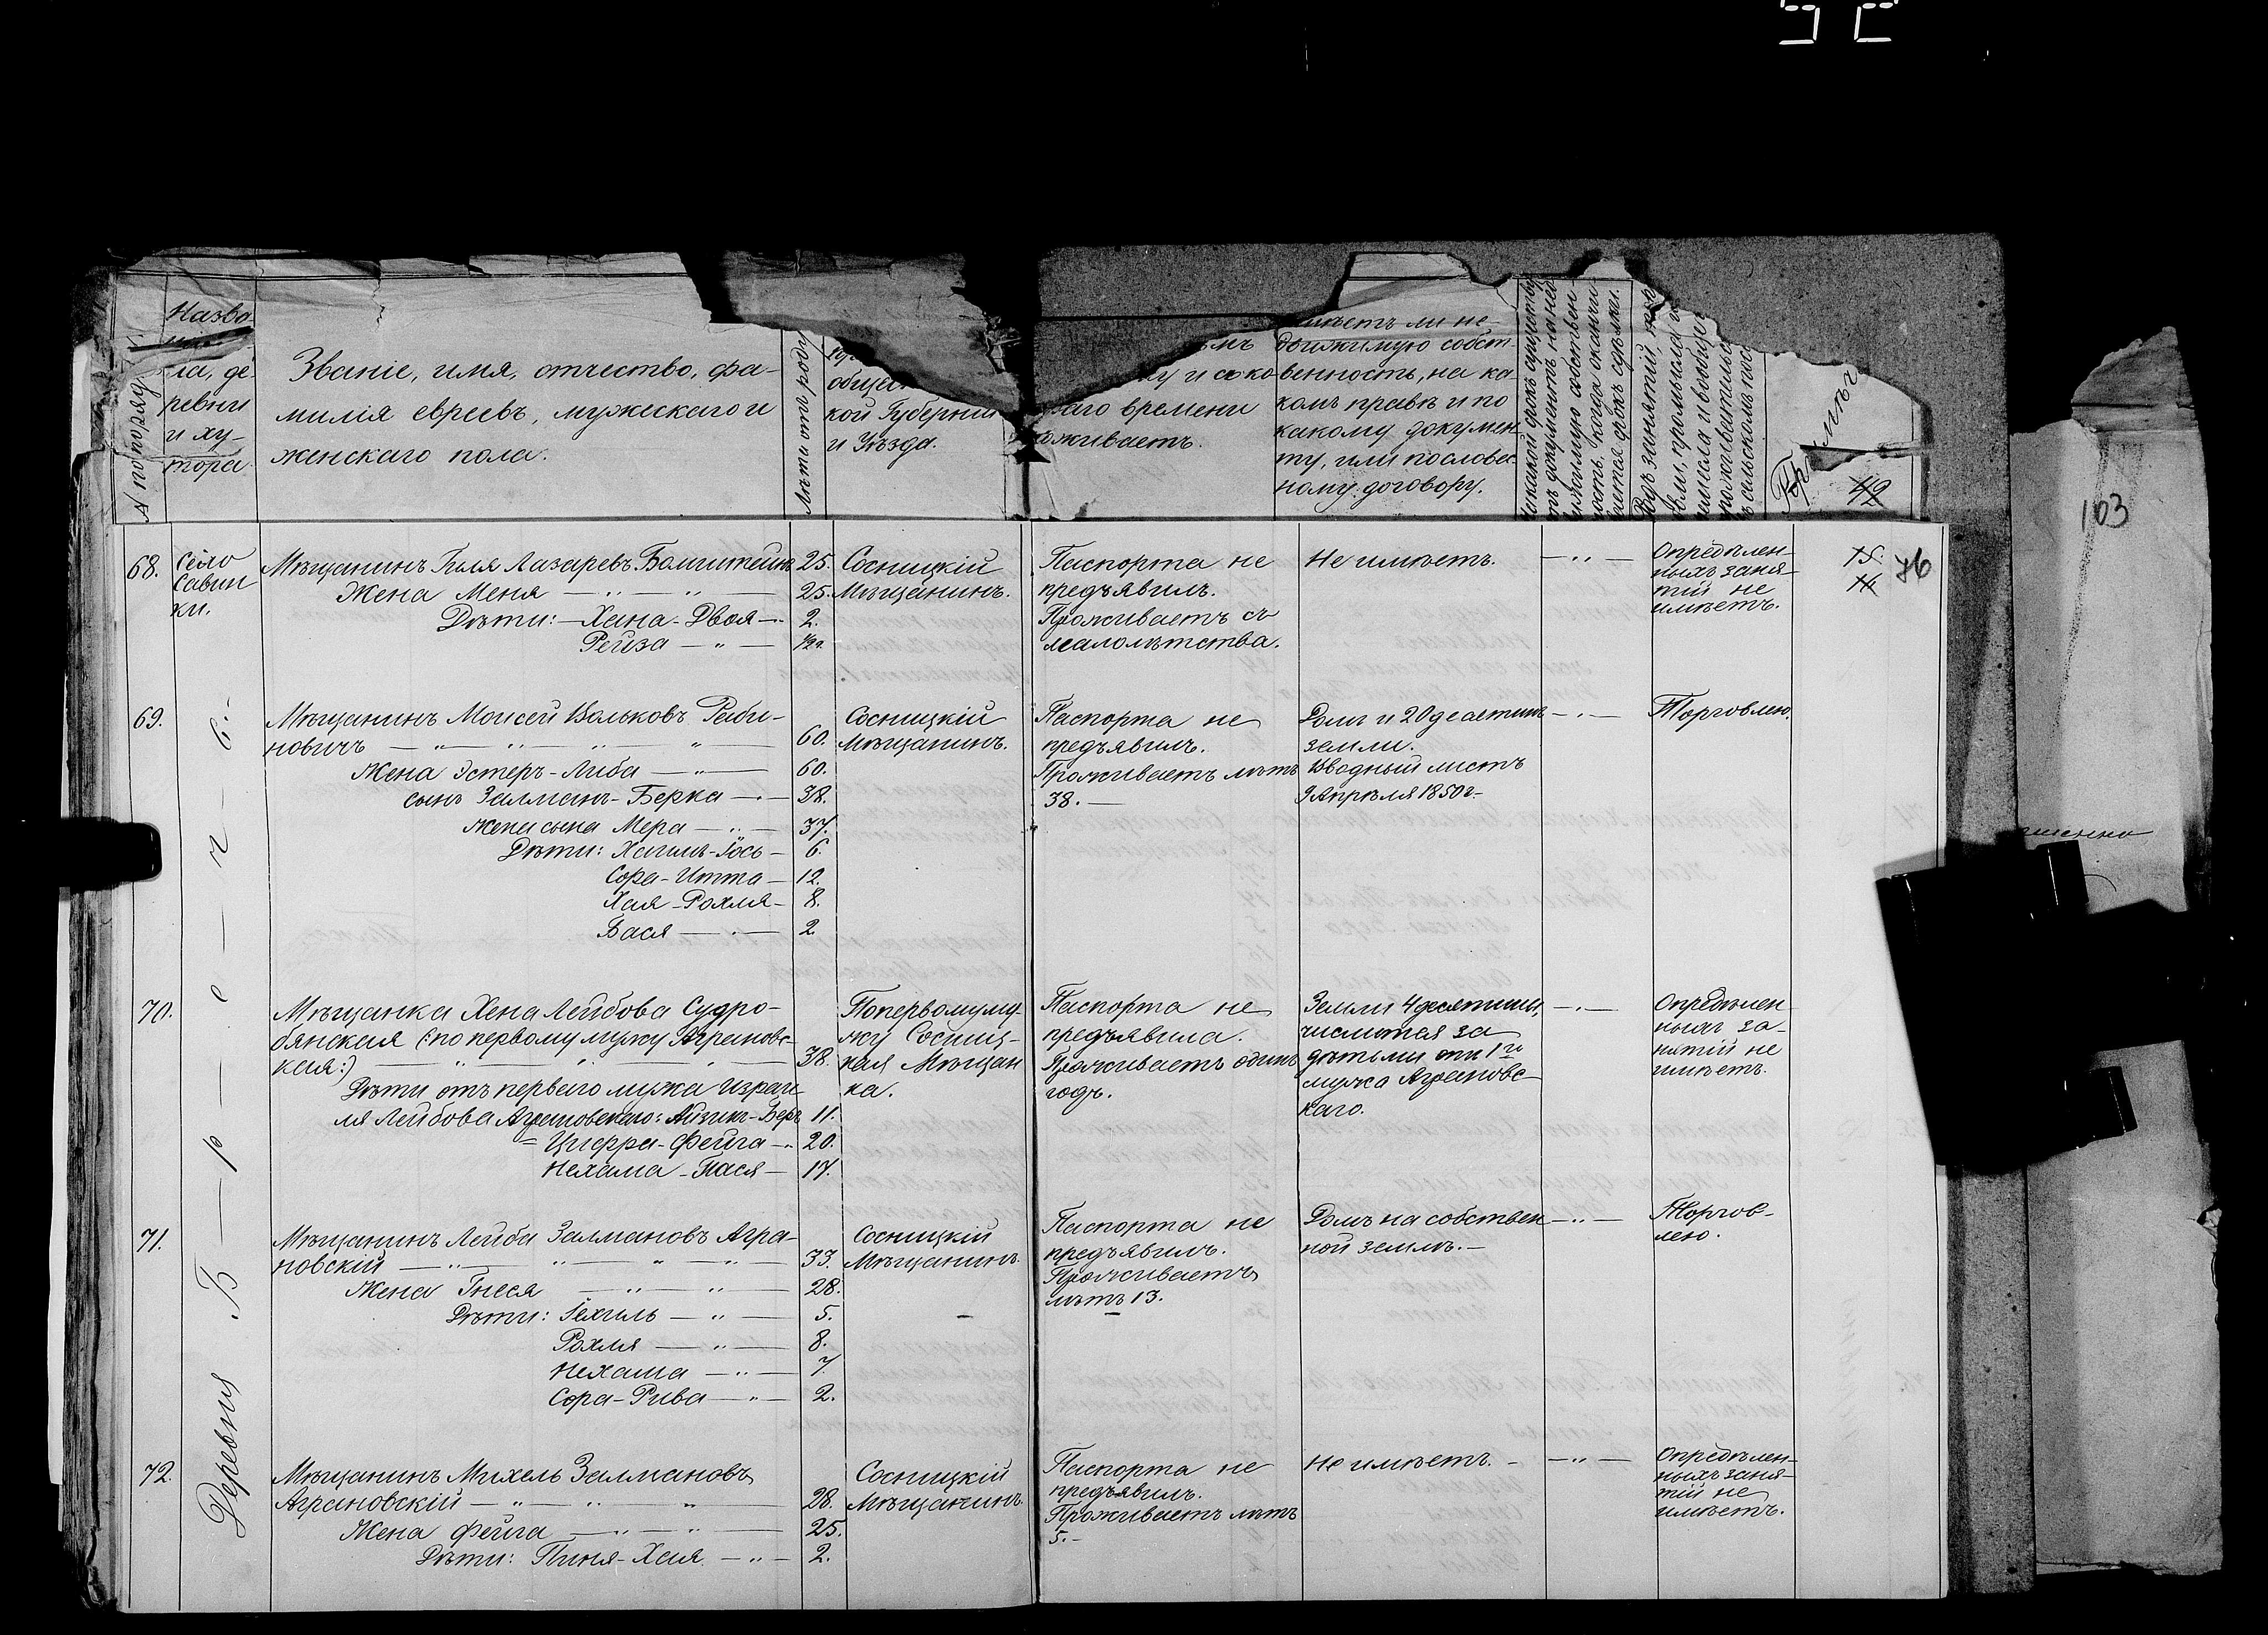 Назва
ла, де-
ревни
и ху-
тора.
№ по поряд
Званіе, имя, отчество, фа-
милія евреевъ, мужескаго и
женскаго пола.
Лѣта отъ роду
кой Губерніи
и Уѣзда.
и ско
раго времени
оживаетъ.
имѣетъ ли не-
движимую собст-
венность, на ка-
комъ правѣ и по
какому докумен-
ту, или по словес-
ному договору.
49
103
76
68.
Село
Савин
ки.
Мѣщанинъ Гиля Лазаревъ Бомштейнъ 25.
Жена Меня — „ — „ — 25.
Дѣти: — Хана-Двоя — 2.
Рейза — „ — 1/2 г.
Сосницкій
Мѣщанинъ.
Паспорта не
предъявилъ.
Проживаетъ съ
малолѣтства.
Не имѣетъ.
— „ —
Опредѣлен-
ныхъ заня-
тій не
имѣетъ.
69.
Мѣщанинъ Моисей Вольковъ Раби-
новичъ — „ — „ — „ — „ — 60.
Жена Эстеръ-Либа — „ — 60.
сынъ Залманъ-Берка — „ — 38.
Жена сына Мера — „ — 37.
Дѣти: Хаимъ-Іось — 6.
Сора-Итта — 12.
Хая-Рохля — 8.
Бася — „ — 2.
Сосницкій
Мѣщанинъ.
Паспорта не
предъявилъ.
Проживаетъ лѣтъ
38. —
Домъ и 20 десятинъ
земли.
Вводный листъ
9 Апрѣля 1850 г. —
— „ —
Торговлею.
70.
Мѣщанка Хена Лейбова Судро-
бянская (: по первому мужу Аграновс-
кая:) — „ — „ — „ — 38.
Дѣти отъ перваго мужа Израи-
ля Лейбова Аграновскаго: Айзикъ-Беръ 11.
Цифра-Фейга — „ 20.
Нехама-Пася — 17.
По первому му-
жу Сосниц-
кая Мѣщан
ка.
Паспорта не
предъявила.
Проживаетъ одинъ
годъ.
Земли 4 десятины,
числится за
дѣтьми отъ 1го
мужа Аграновс-
каго.
— „ —
Опредѣлен
ныхъ за-
нятій не
имѣетъ.
71.
Мѣщанинъ Лейба Залмановъ Агра-
новскій — „ — „ — „ — „ — 33.
Жена Гнеся — „ — „ — 28.
Дѣти: Іехиль — „ — 5.
Рохля — „ — 8.
Нехама — „ — 7.
Сора-Рива — „ — 2.
Сосницкій
Мѣщанинъ.
Паспорта не
предъявилъ.
Проживаетъ
лѣтъ 13.
Домъ на собствен
ной землѣ. —
— „ —
Торгов-
лею.
72.
Мѣщанинъ Михель Залмановъ
Аграновскій — „ — „ — „ — 28.
Жена Фейга — „ — „ — 25.
Дѣти: Пиня-Хая — „ — 2.
Сосницкій
Мѣщанинъ.
Паспорта не
предъявилъ.
Проживаетъ лѣтъ
5. —
Не имѣетъ. —
— „ —
Опредѣлен-
ныхъ заня-
тій не
имѣетъ.
Деревня